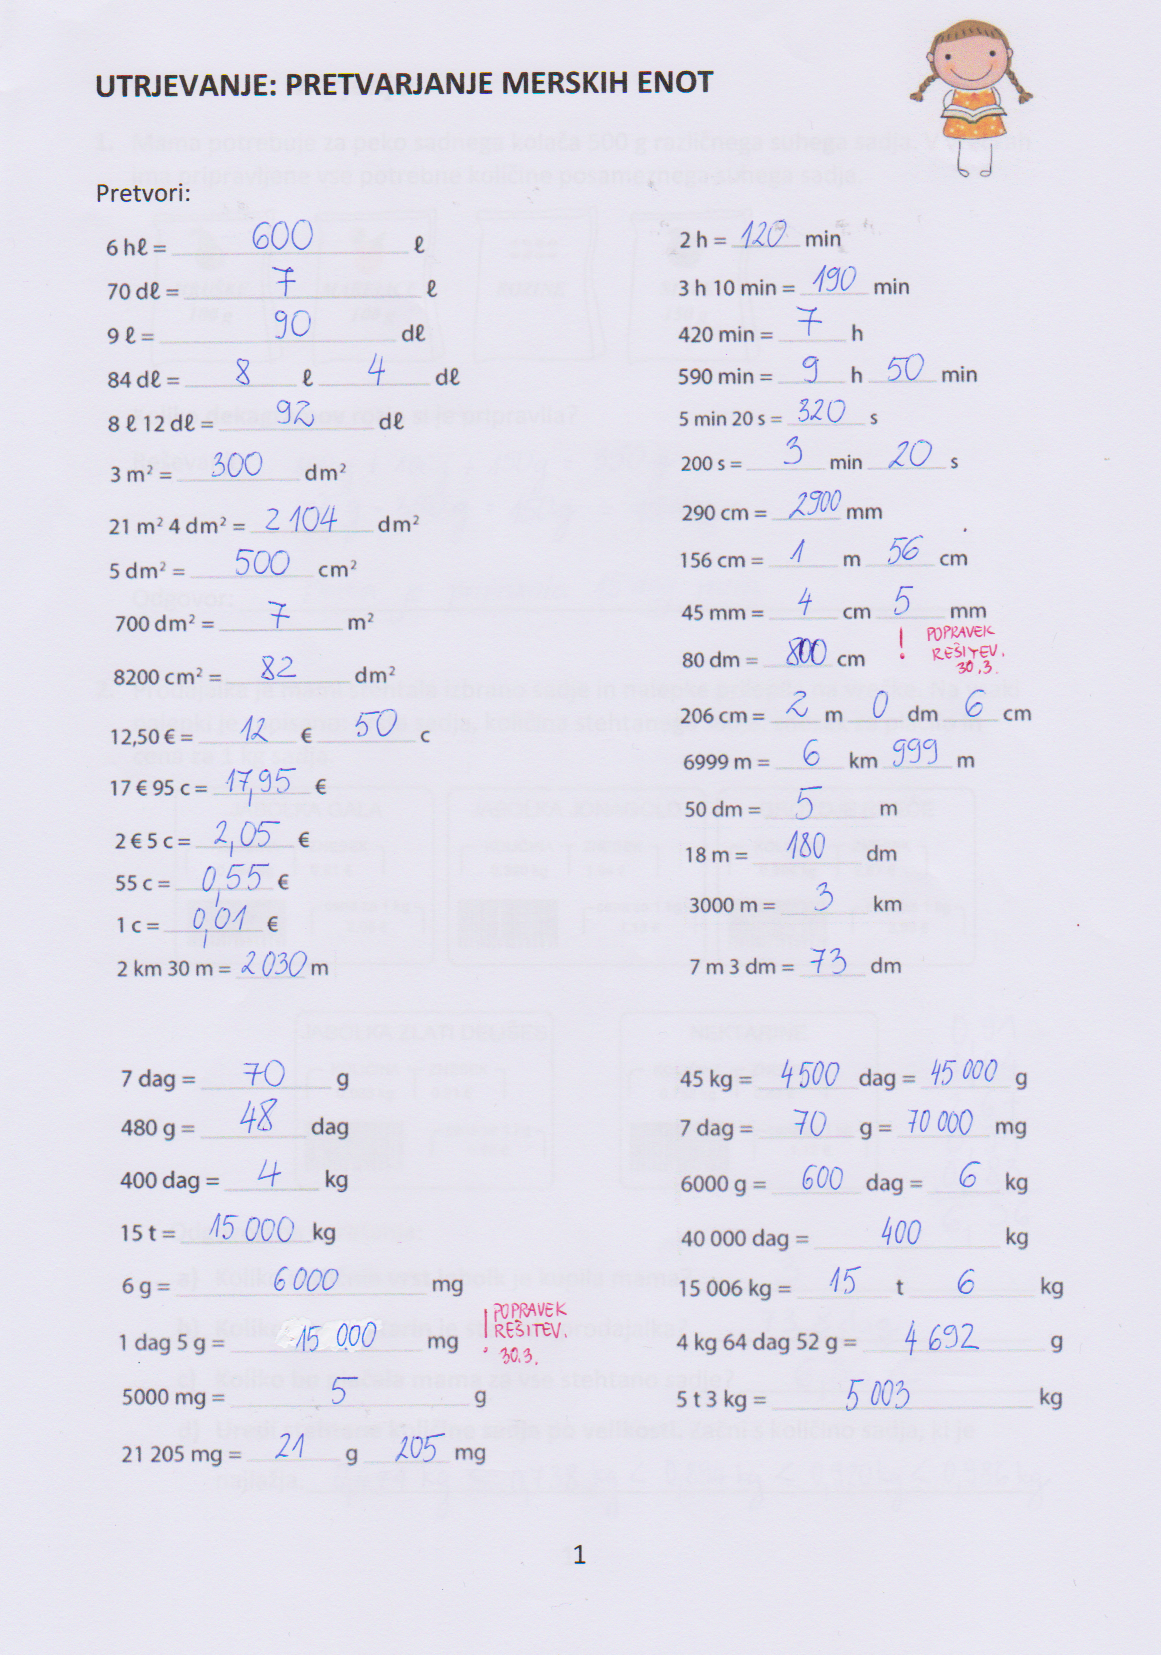 UTRJEVANJE: PRETVARJANJE MERSKIH ENOT
Pretvori:
6 hℓ = 600 ℓ
70 dℓ = 7 ℓ
9 ℓ = 90 dℓ
84 dℓ = 8 ℓ 4 dℓ
8 ℓ 12 dℓ = 92 dℓ
3 m² = 300 dm²
21 m² 4 dm² = 2 104 dm²
5 dm² = 500 cm²
700 dm² = 7 m²
8200 cm² = 82 dm²
12,50 € = 12 € 50 c
17 € 95 c = 17,95 €
2 € 5 c = 2,05 €
55 c = 0,55 €
1 c = 0,01 €
2 km 30 m = 2 030 m
2 h = 120 min
3 h 10 min = 190 min
420 min = 7 h
590 min = 9 h 50 min
5 min 20 s = 320 s
200 s = 3 min 20 s
290 cm = 2900 mm
156 cm = 1 m 56 cm
45 mm = 4 cm 5 mm
80 dm = 800 cm
! POPRAVEK
REŠITEV.
30.3.
206 cm = 2 m 0 dm 6 cm
6999 m = 6 km 999 m
50 dm = 5 m
18 m = 180 dm
3000 m = 3 km
7 m 3 dm = 73 dm
7 dag = 70 g
480 g = 48 dag
400 dag = 4 kg
15 t = 15 000 kg
6 g = 6 000 mg
1 dag 5 g = 15 000 mg
! POPRAVEK
REŠITEV.
30.3.
5000 mg = 5 g
21 205 mg = 21 g 205 mg
45 kg = 4500 dag = 45 000 g
7 dag = 70 g = 70 000 mg
6000 g = 600 dag = 6 kg
40 000 dag = 400 kg
15 006 kg = 15 t 6 kg
4 kg 64 dag 52 g = 4 692 g
5 t 3 kg = 5 003 kg
1